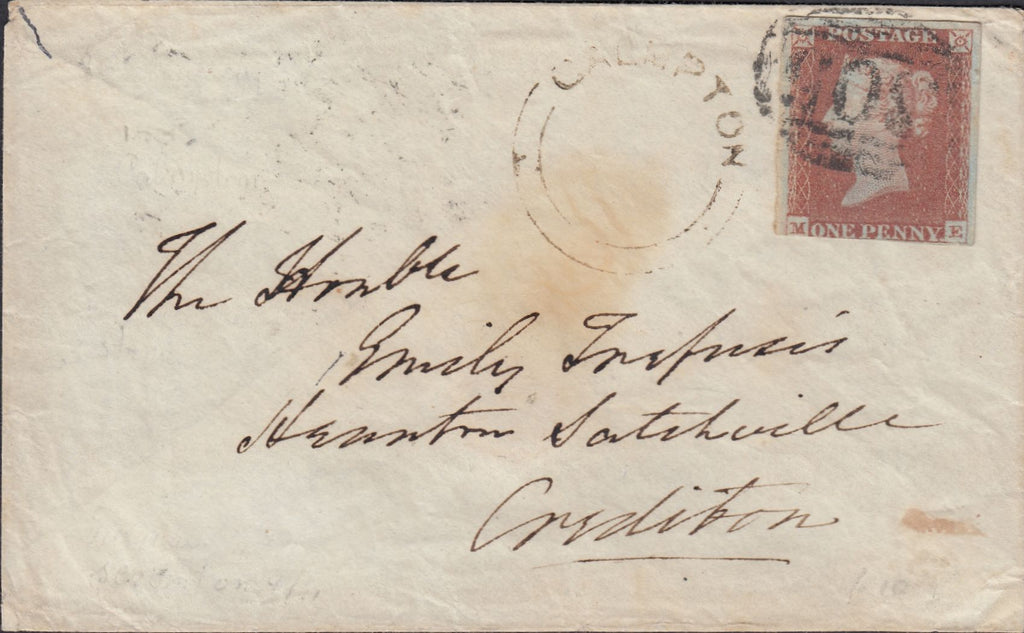 CALEPTON
POSTAGE
M ONE PENNY E
The Honble
Emily Trefusis
Heanton Satchville
Crediton